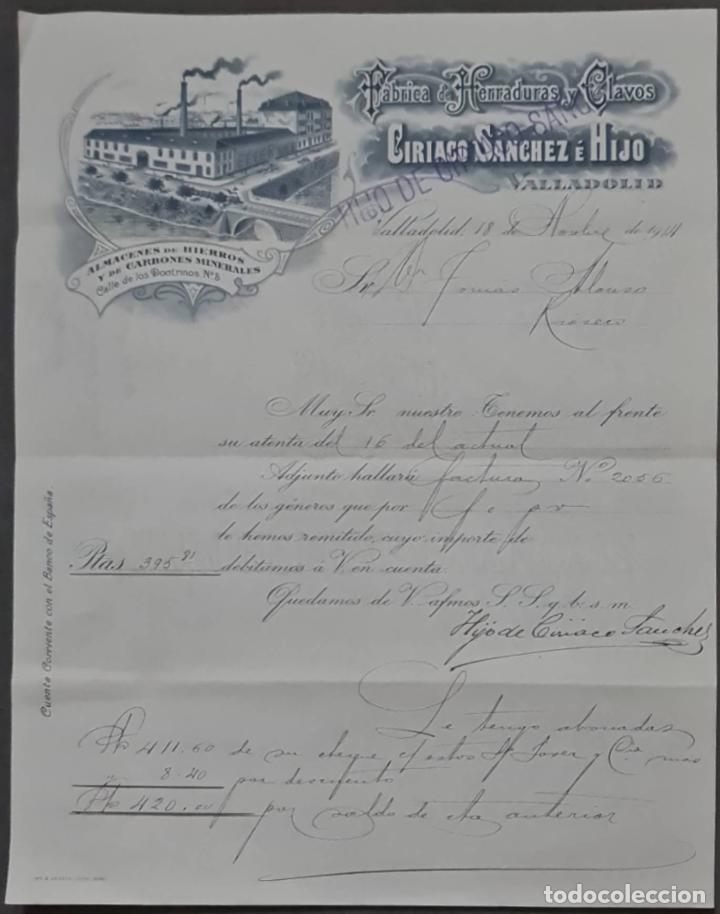 Fábrica de Herraduras y Clavos
CIRIACO SANCHEZ É HIJO
VALLADOLID
HIJO DE CIRIACO SANCHEZ
ALMACENES DE HIERROS
Y DE CARBONES MINERALES
Calle de los Doctrinos, Nº 8
Valladolid, 18 de Novbre de 19
Sr. Dn Tomás Alonso
Rioseco
Muy Sr. nuestro: Tenemos al frente
su atenta del 16 del actual
Adjunto hallará factura Nº 2056
de los géneros que por
le hemos remitido, cuyo importe de
Ptas 395 81 debitamos á V. en cuenta.
Quedamos de V. afmos. S. S. q. b. s. m.
Hijo de Ciriaco Sanchez
Le tengo abonadas
Pts 411.60 de su cheque c/ estos Sr Jover y Cia mas
" 8.40 por descuento
Pts 420.00 por saldo de cta anterior
Cuenta Corriente con el Banco de España.
todocoleccion.net